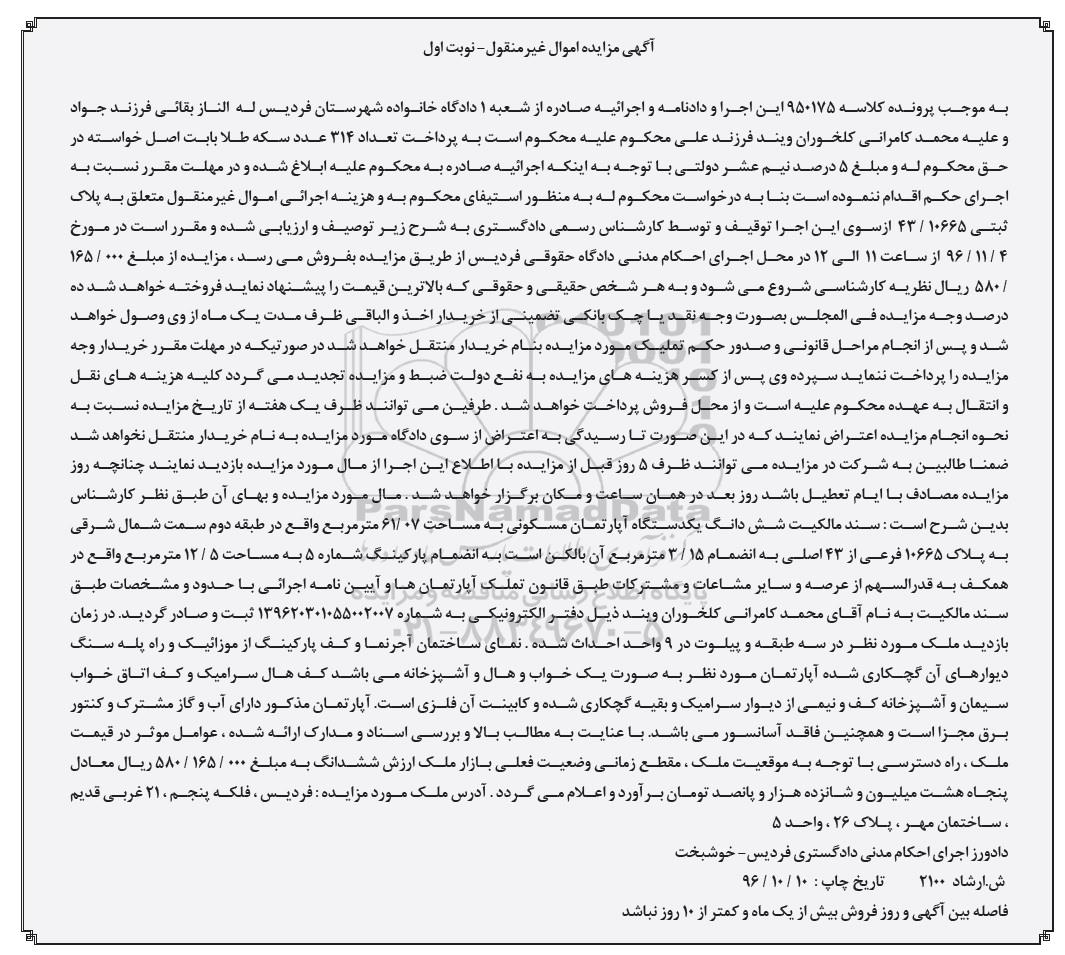 آگهی مزایده اموال غیرمنقول- نوبت اول
به موجب پرونده کلاسه ۹۵۰۱۷۵ این اجرا و دادنامه و اجرائیه صادره از شعبه ۱ دادگاه خانواده شهرستان فردیس له الناز بقائی فرزند جواد
و علیه محمد کامرانی کلخوران ویند فرزند علی محکوم علیه محکوم است به پرداخت تعداد ۳۱۴ عدد سکه طلا بابت اصل خواسته در
حق محکوم له و مبلغ ۵ درصد نیم عشر دولتی با توجه به اینکه اجرائیه صادره به محکوم علیه ابلاغ شده و در مهلت مقرر نسبت به
اجرای حکم اقدام ننموده است بنا به درخواست محکوم له به منظور استیفای محکوم به و هزینه اجرائی اموال غیرمنقول متعلق به پلاک
ثبتی ۱۰۶۶۵ / ۴۳ ازسوی این اجرا توقیف و توسط کارشناس رسمی دادگستری به شرح زیر توصیف و ارزیابی شده و مقرر است در مورخ
۴ / ۱۱ / ۹۶ از ساعت ۱۱ الی ۱۲ در محل اجرای احکام مدنی دادگاه حقوقی فردیس از طریق مزایده بفروش می رسد ، مزایده از مبلغ ۰۰۰ / ۱۶۵
/ ۵۸۰ ریال نظریه کارشناسی شروع می شود و به هر شخص حقیقی و حقوقی که بالاترین قیمت را پیشنهاد نماید فروخته خواهد شد ده
درصد وجه مزایده فی المجلس بصورت وجه نقد یا چک بانکی تضمینی از خریدار اخذ و الباقی ظرف مدت یک ماه از وی وصول خواهد
شد و پس از انجام مراحل قانونی و صدور حکم تملیک مورد مزایده بنام خریدار منتقل خواهد شد در صورتیکه در مهلت مقرر خریدار وجه
مزایده را پرداخت ننماید سپرده وی پس از کسر هزینه های مزایده به نفع دولت ضبط و مزایده تجدید می گردد کلیه هزینه های نقل
و انتقال به عهده محکوم علیه است و از محل فروش پرداخت خواهد شد . طرفین می توانند ظرف یک هفته از تاریخ مزایده نسبت به
نحوه انجام مزایده اعتراض نمایند که در این صورت تا رسیدگی به اعتراض از سوی دادگاه مورد مزایده به نام خریدار منتقل نخواهد شد
ضمنا طالبین به شرکت در مزایده می توانند ظرف ۵ روز قبل از مزایده با اطلاع این اجرا از مال مورد مزایده بازدید نمایند چنانچه روز
مزایده مصادف با ایام تعطیل باشد روز بعد در همان ساعت و مکان برگزار خواهد شد . مال مورد مزایده و بهای آن طبق نظر کارشناس
بدین شرح است : سند مالکیت شش دانگ یکدستگاه آپارتمان مسکونی به مساحت ۶۱/۰۷ مترمربع واقع در طبقه دوم سمت شمال شرقی
به پلاک ۱۰۶۶۵ فرعی از ۴۳ اصلی به انضمام ۱۵ / ۳ مترمربع آن بالکن است به انضمام پارکینگ شماره ۵ به مساحت ۵ / ۱۲ مترمربع واقع در
همکف به قدرالسهم از عرصه و سایر مشاعات و مشترکات طبق قانون تملک آپارتمان ها و آیین نامه اجرائی با حدود و مشخصات طبق
سند مالکیت به نام آقای محمد کامرانی کلخوران ویند ذیل دفتر الکترونیکی به شماره ۱۳۹۶۲۰۳۰۱۰۵۵۰۰۲۰۰۷ ثبت و صادر گردید. در زمان
بازدید ملک مورد نظر در سه طبقه و پیلوت در ۹ واحد احداث شده . نمای ساختمان آجرنما و کف پارکینگ از موزائیک و راه پله سنگ
دیوارهای آن گچکاری شده آپارتمان مورد نظر به صورت یک خواب و هال و آشپزخانه می باشد کف هال سرامیک و کف اتاق خواب
سیمان و آشپزخانه کف و نیمی از دیوار سرامیک و بقیه گچکاری شده و کابینت آن فلزی است. آپارتمان مذکور دارای آب و گاز مشترک و کنتور
برق مجزا است و همچنین فاقد آسانسور می باشد. با عنایت به مطالب بالا و بررسی اسناد و مدارک ارائه شده ، عوامل موثر در قیمت
ملک ، راه دسترسی با توجه به موقعیت ملک ، مقطع زمانی وضعیت فعلی بازار ملک ارزش ششدانگ به مبلغ ۰۰۰ / ۱۶۵ / ۵۸۰ ریال معادل
پنجاه هشت میلیون و شانزده هزار و پانصد تومان برآورد و اعلام می گردد . آدرس ملک مورد مزایده : فردیس ، فلکه پنجم ، ۲۱ غربی قدیم
، ساختمان مهر ، پلاک ۲۶ ، واحد ۵
دادورز اجرای احکام مدنی دادگستری فردیس- خوشبخت
ش.ارشاد ۲۱۰۰ تاریخ چاپ : ۱۰ / ۱۰ / ۹۶
فاصله بین آگهی و روز فروش بیش از یک ماه و کمتر از ۱۰ روز نباشد
ParsNamadData
پایگاه اطلاع رسانی مناقصه و مزایده
۰۲۱-۸۸۳۴۹۶۷۰-۵